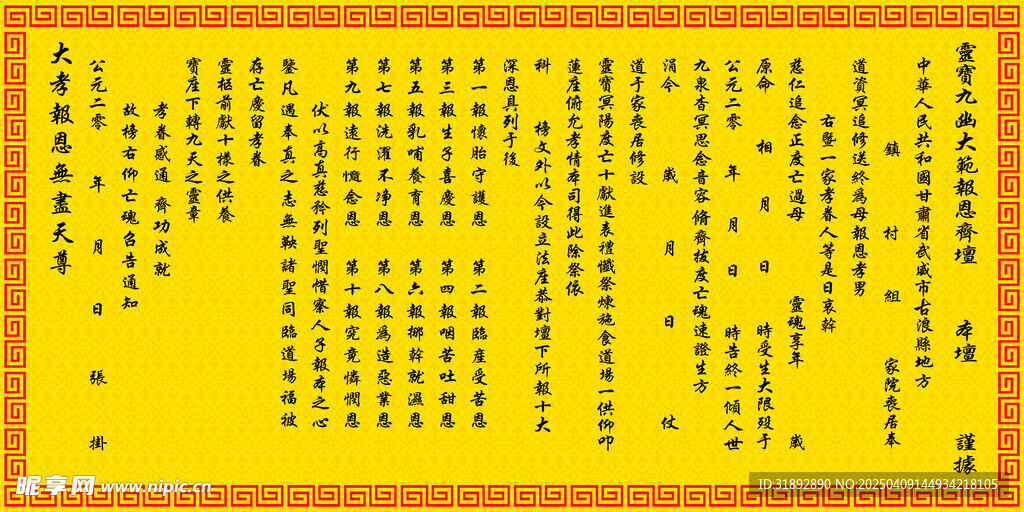 靈寶九幽大範報恩齊壇 本壇 謹據
中華人民共和國甘肅省武威市古浪縣地方
鎮 村 組 家院喪居奉
道資冥追修送終為母報恩孝男
右暨一家孝眷人等是日哀幹
慈仁追念正度亡過母 靈魂享年 歲
原命 相 月 日 時受生大限歿于
公元二零 年 月 日 時告終一傾人世
九泉杳冥思念音容脩齊拔度亡魂速證生方
涓今 歲 月 日 仗
道于家喪居修設
靈寶冥陽度亡十獻進表禮懺祭煉施食道場一供仰叩
蓮座俯允孝情本司得此除祭依
科 榜文外以今設立法座恭對壇下所報十大
深恩具列于後
第一報懷胎守護恩 第二報臨產受苦恩
第三報生子喜慶恩 第四報咽苦吐甜恩
第五報乳哺養育恩 第六報挪幹就濕恩
第七報洗濯不净恩 第八報為造惡業恩
第九報遠行憶念恩 第十報究竟憐憫恩
伏以高真慈矜列聖憫惜察人子報本之心
鑒凡遇奉真之志無鞅諸聖同臨道場福被
存亡慶留孝眷
靈柩前獻十樣之供養
寶座下轉九天之靈章
孝眷感通 齊功成就
故榜右仰亡魂名告通知
公元二零 年 月 日 張 掛
大孝報恩無盡天尊
昵享网 www.nipic.cn
ID:31892890 NO:20250409144934218105